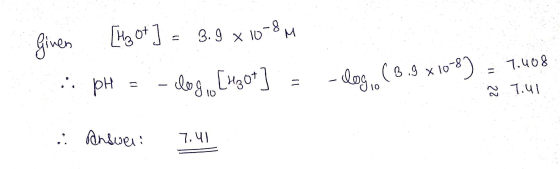 Given [H₃O⁺] = 3.9 × 10⁻⁸ M
∴ pH = - log₁₀ [H₃O⁺] = - log₁₀ (3.9 × 10⁻⁸) = 7.408
≈ 7.41
∴ Answer: 7.41